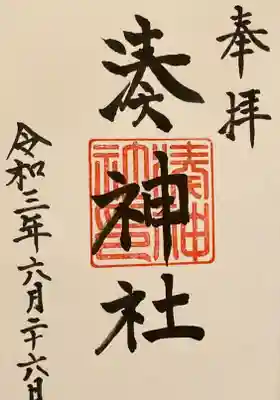 奉拝
湊神社
令和三年六月二十六日